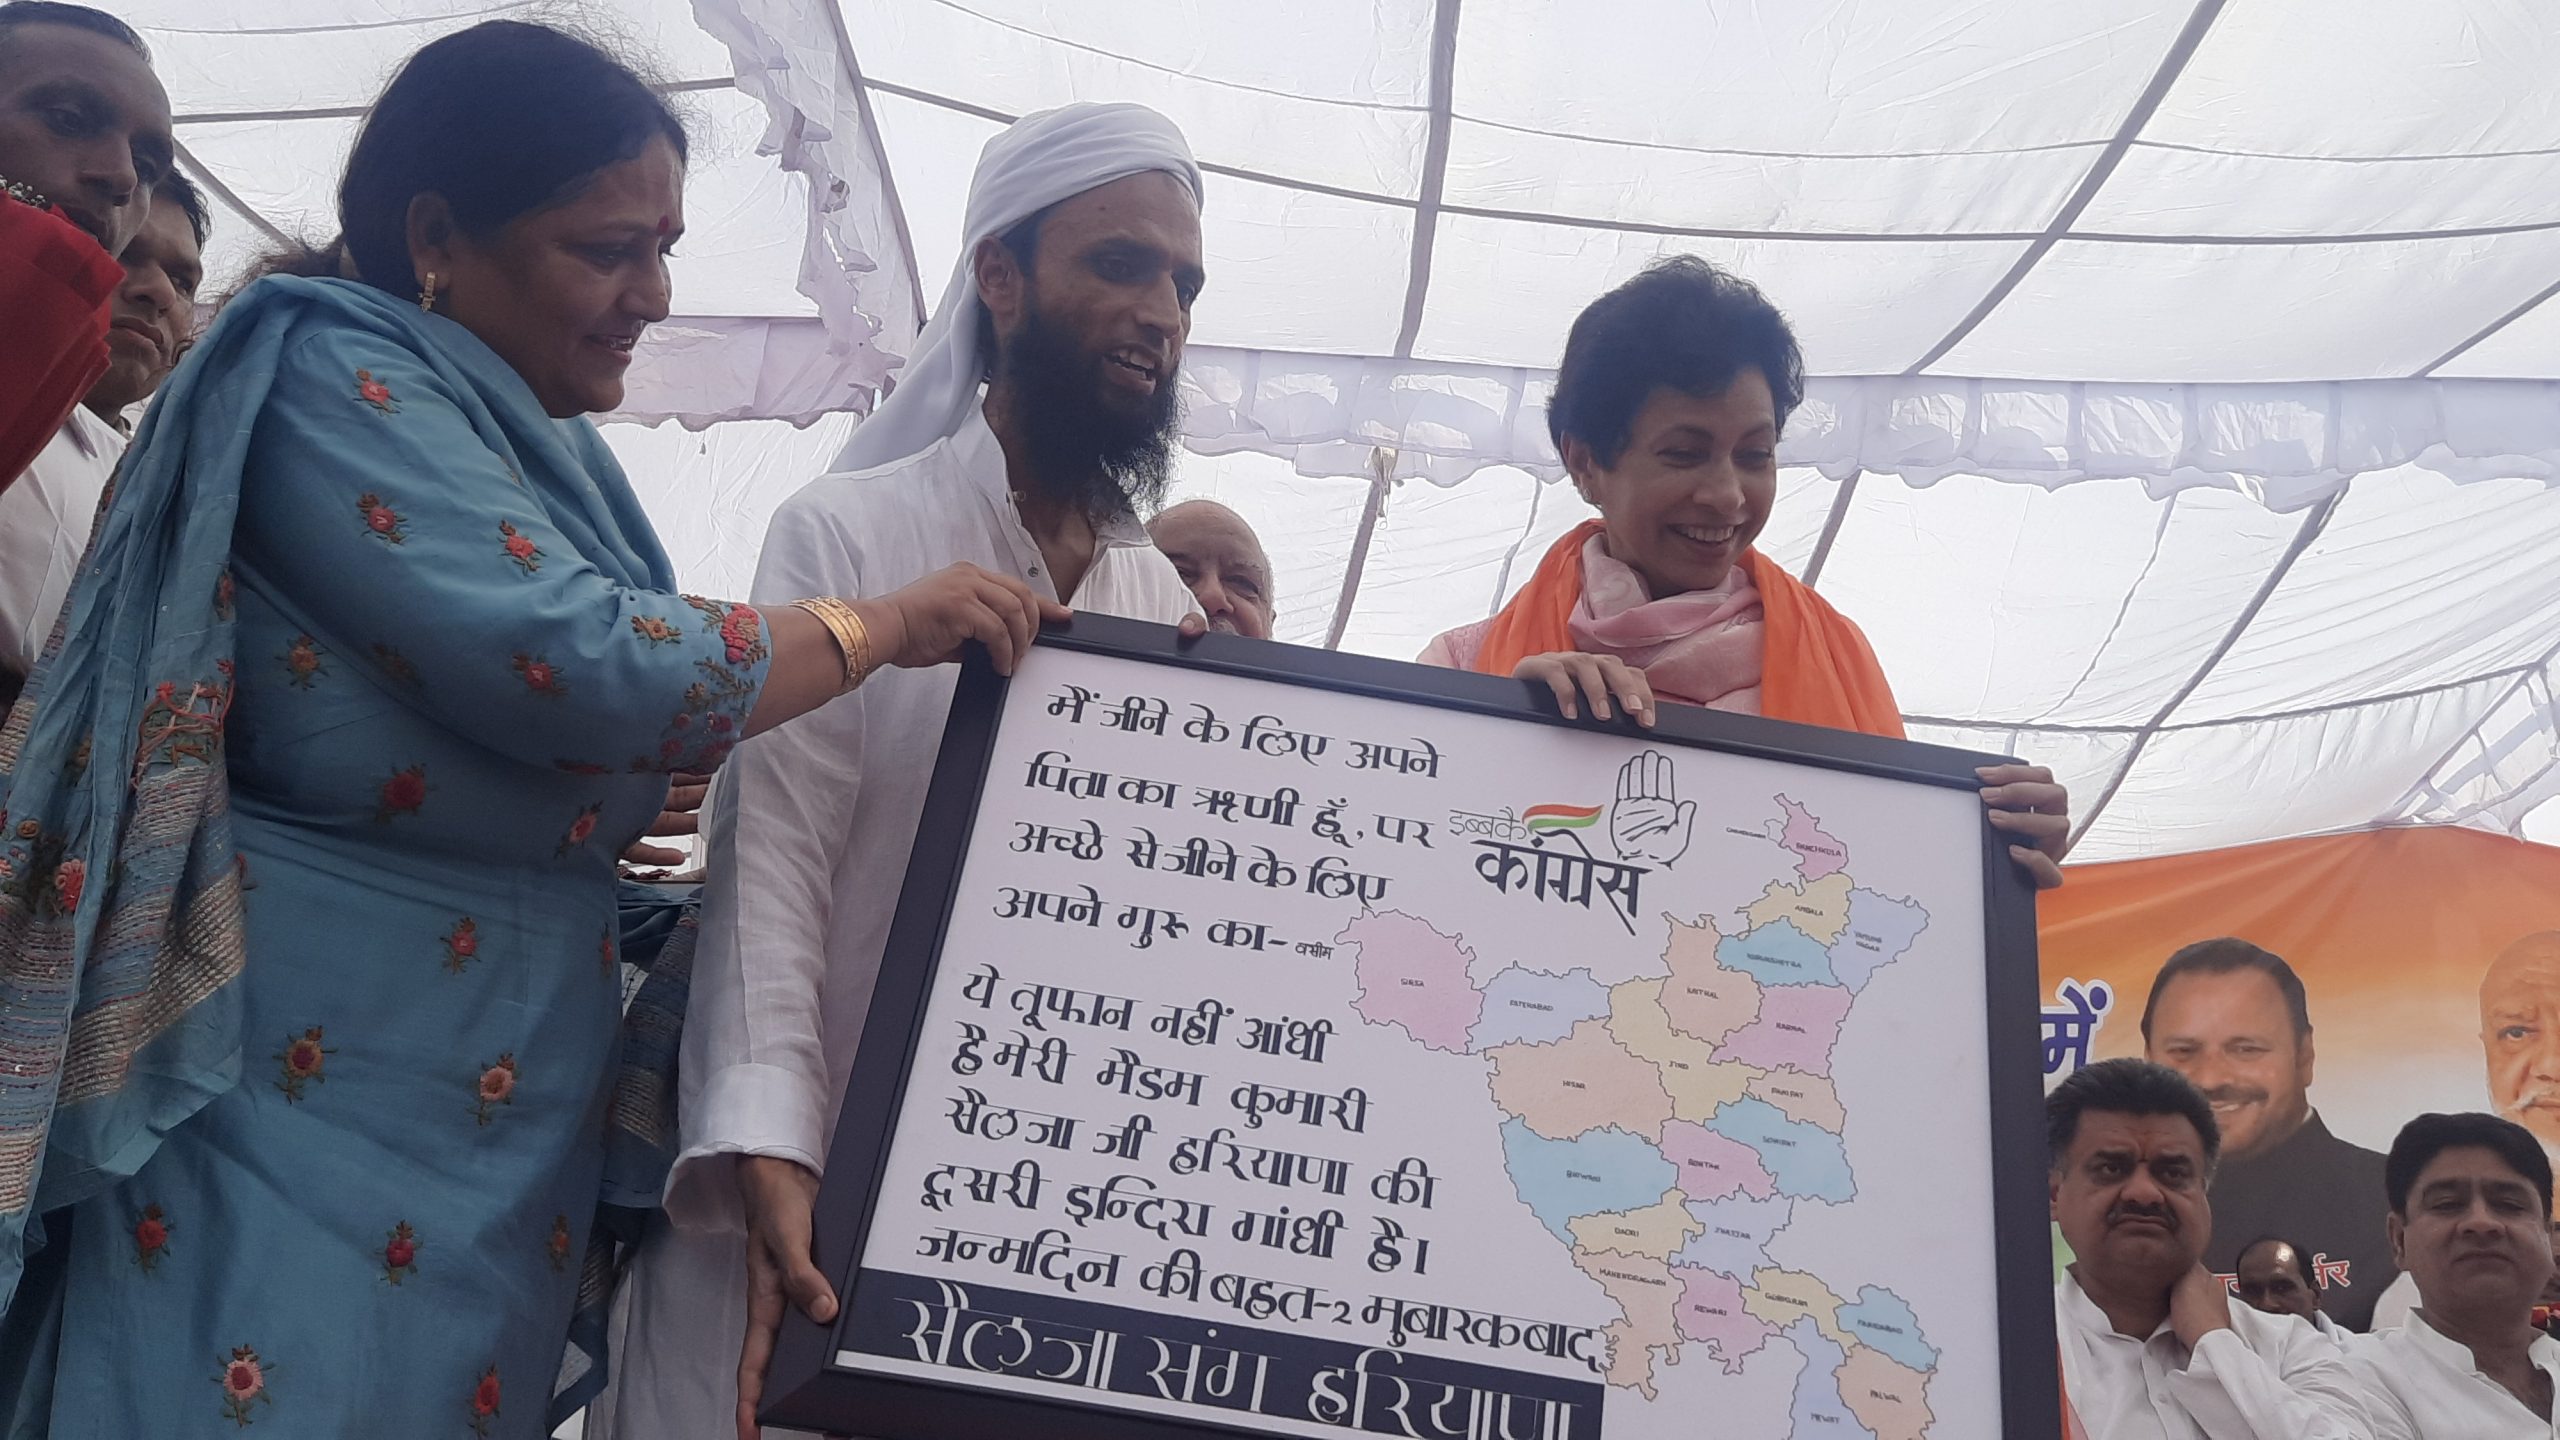 मैं जीने के लिए अपने
पिता का ऋणी हूँ, पर
अच्छे से जीने के लिए
अपने गुरू का- वसीम
ये तूफान नहीं आंधी
है मेरी मैडम कुमारी
सैलजा जी हरियाणा की
दूसरी इन्दिरा गांधी है।
जन्मदिन की बहुत-2 मुबारकबाद
सैलजा संग हरियाणा
इब्बकै
कांग्रेस
CHANDIGARH
PANCHKULA
AMBALA
YAMUNA
NAGAR
KURUKSHETRA
SIRSA
FATEHABAD
KAITHAL
KARNAL
JIND
HISAR
PANIPAT
SONIPAT
ROHTAK
BHIWANI
DADRI
JHAJJAR
MAHENDRAGARH
REWARI
GURUGRAM
FARIDABAD
PALWAL
MEWAT
में